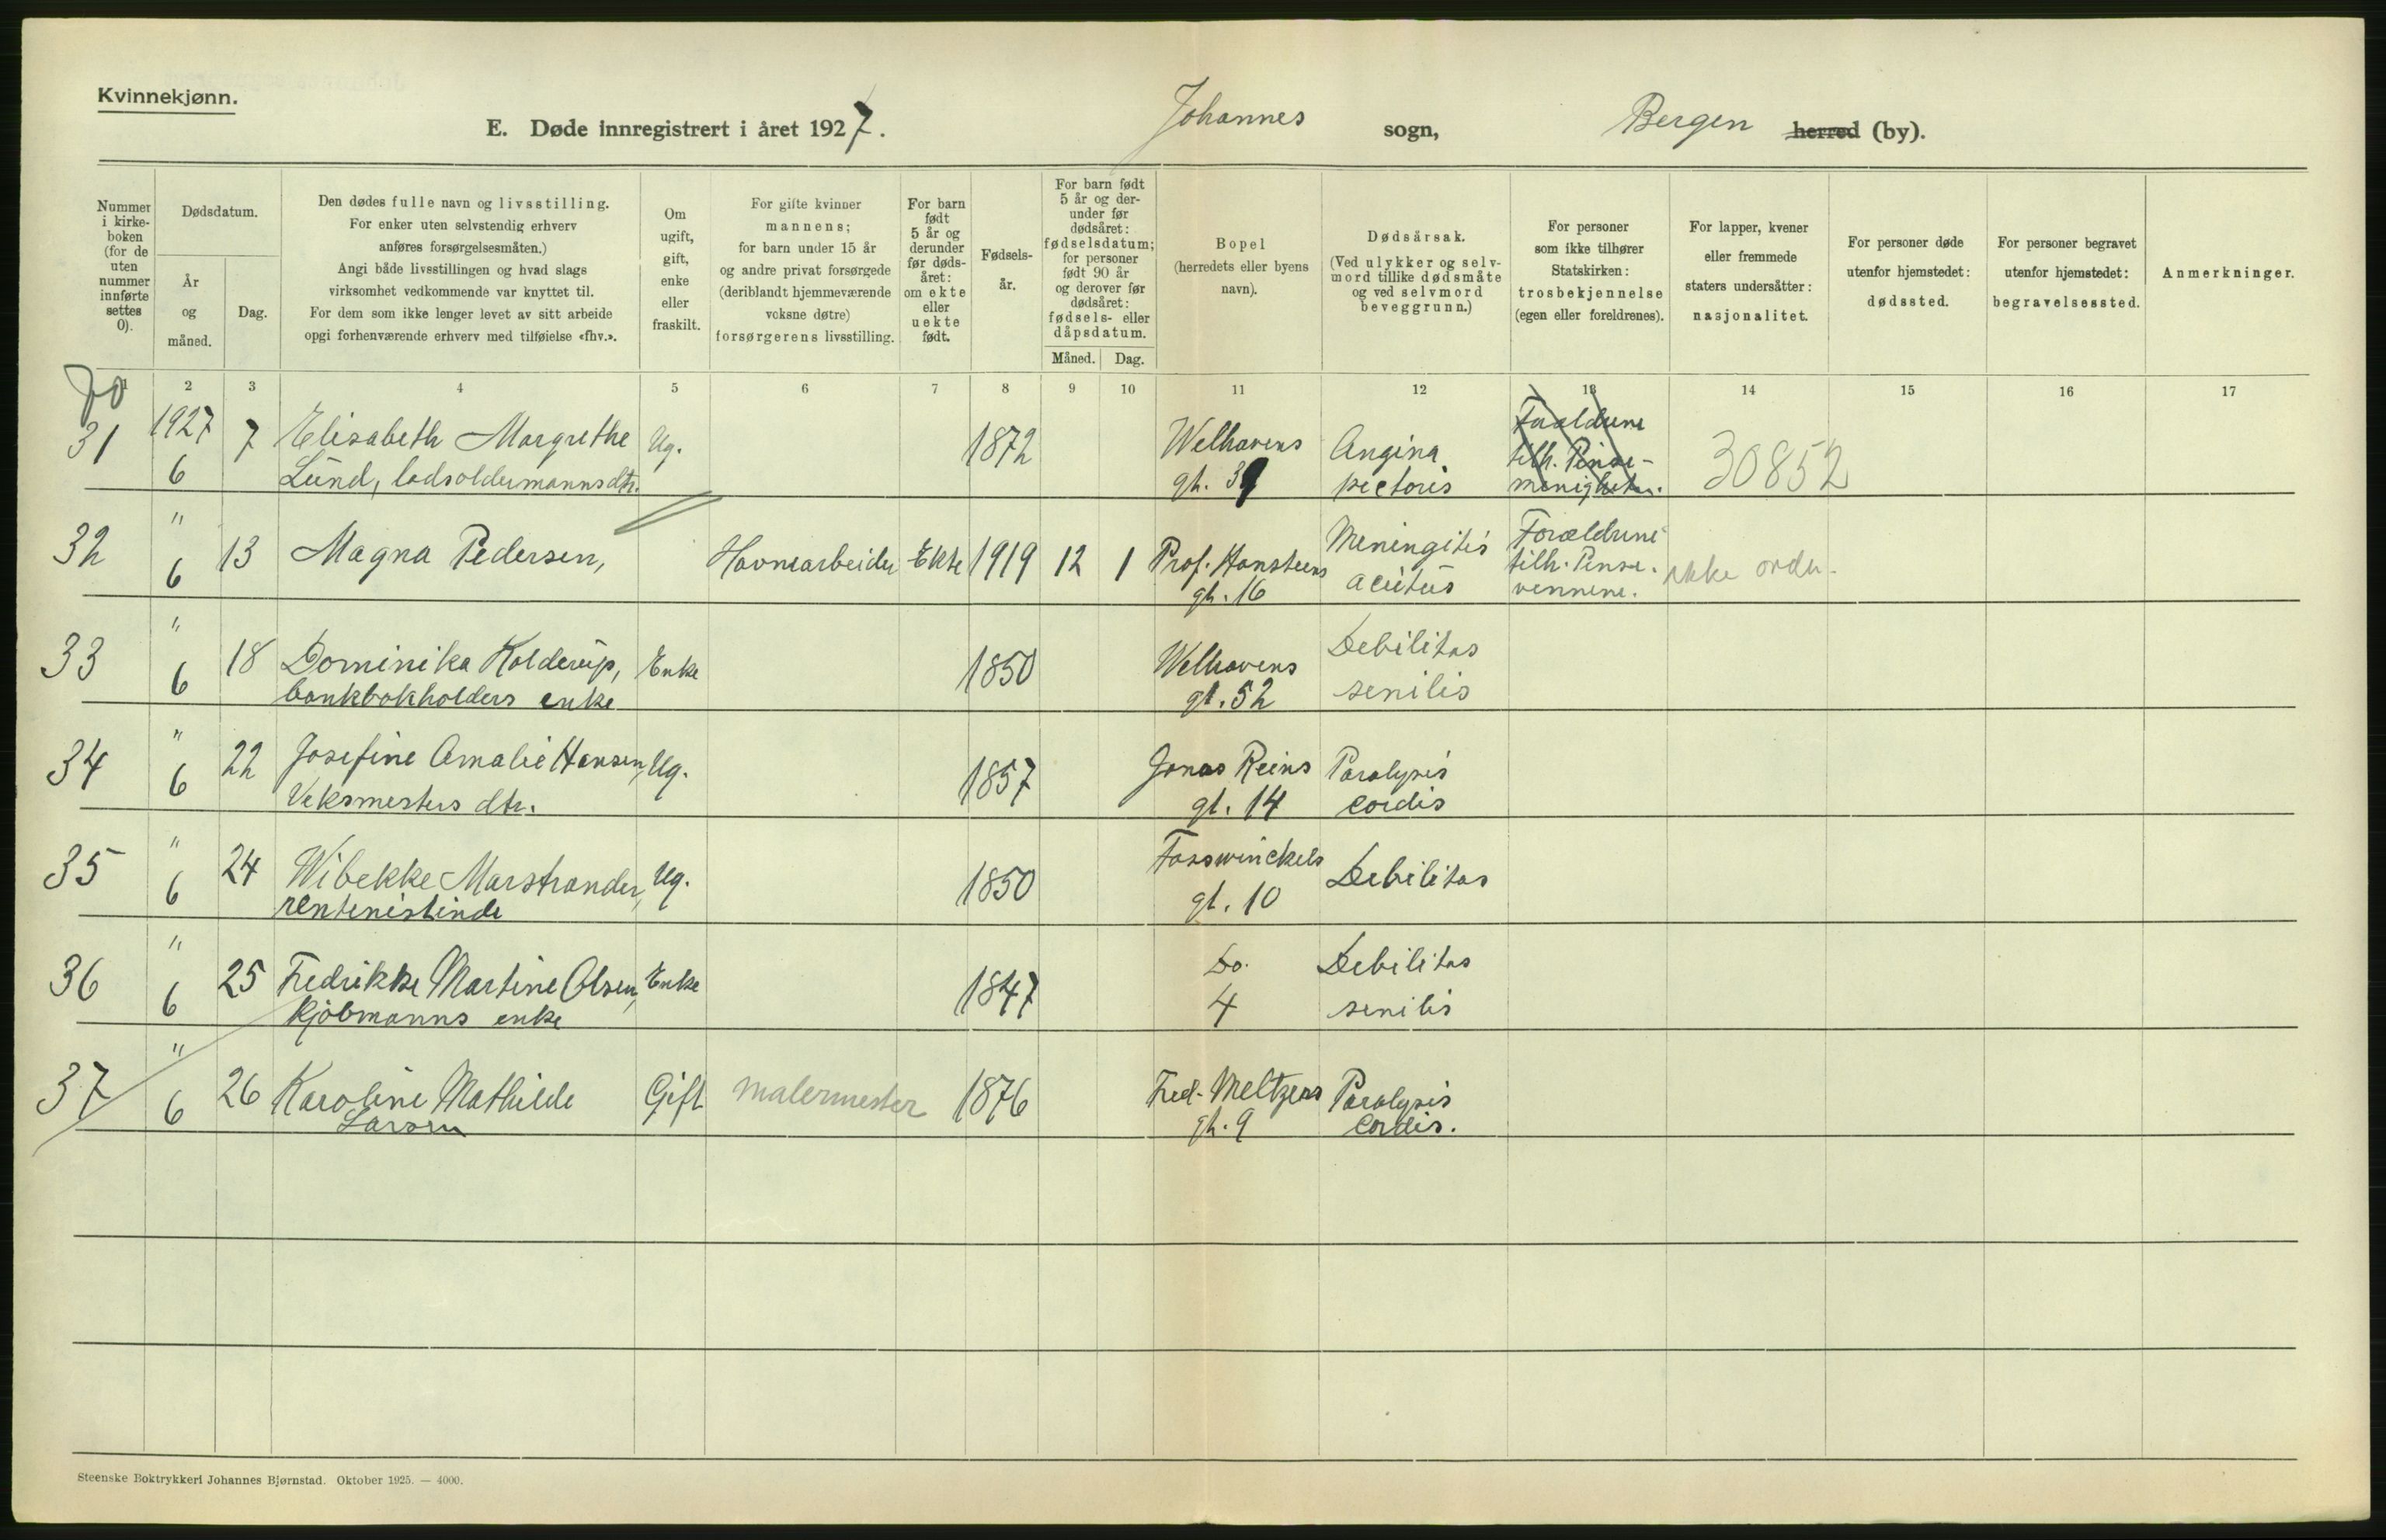 Kvinnekjønn.
E. Døde innregistrert i året 1927. Johannes sogn, Bergen herred (by).
Nummer i kirke-boken (for de uten nummer innførte settes 0).
Dødsdatum.
År og måned.
Dag.
Den dødes fulle navn og livsstilling.
For enker uten selvstendig erhverv
anføres forsørgelsesmåten.)
Angi både livsstillingen og hvad slags
virksomhet vedkommende var knyttet til.
For dem som ikke lenger levet av sitt arbeide
opgi forhenværende erhverv med tilføielse «fhv.».
Om ugift, gift, enke eller fraskilt.
For gifte kvinner
mannens;
for barn under 15 år
og andre privat forsørgede
(deriblandt hjemmeværende
voksne døtre)
forsørgerens livsstilling.
For barn født 5 år og derunder før døds-året: om ekte eller uekte født.
Fødsels-år.
For barn født
5 år og der-
under før
dødsåret:
fødselsdatum;
for personer
født 90 år
og derover før
dødsåret:
fødsels- eller
dåpsdatum.
Måned. Dag.
Bopel
(herredets eller byens
navn).
Dødsårsak.
(Ved ulykker og selv-
mord tillike dødsmåte
og ved selvmord
beveggrunn.)
For personer
som ikke tilhører
Statskirken:
trosbekjennelse
(egen eller foreldrenes).
For lapper, kvener
eller fremmede
staters undersåtter:
nasjonalitet.
For personer døde
utenfor hjemstedet:
dødssted.
For personer begravet
utenfor hjemstedet:
begravelsessted.
Anmerkninger.
1 2 3 4 5 6 7 8 9 10 11 12 13 14 15 16 17
31 1927 6 7 Elisabeth Margrethe Ug. 1872 Welhavens Angina Forældrene 30852
Lund, lodsoldermannsdtr. gt. 39 pectoris tilh. Pinse-
menigheten.
32 " 6 13 Magna Pedersen, Havnearbeider Ekte 1919 12 1 Prof. Hansteens Meningitis Forældrene ikke
gt. 16 acutus tilh. Pinse-
vennene.
33 " 6 18 Dominika Kolderup, Enke 1850 Welhavens Debilitas
bankbokholders enke gt. 52 senilis
34 " 6 22 Josefine Amalie Hansen, Ug. 1857 Jonas Reins Paralysis
Veksmesters dtr. gt. 14 cordis
35 " 6 24 Wibekke Marstrander, Ug. 1850 Fosswinckels Debilitas
rentenistinde gt. 10
36 " 6 25 Fredrikke Martine Olsen, Enke 1847 Do. Debilitas
kjøbmanns enke 4 senilis
37 " 6 26 Karoline Mathilde Gift malermester 1876 Fred. Meltzers Paralysis
Larsen gt. 9 cordis.
Steenske Boktrykkeri Johannes Bjørnstad. Oktober 1925. — 4000.